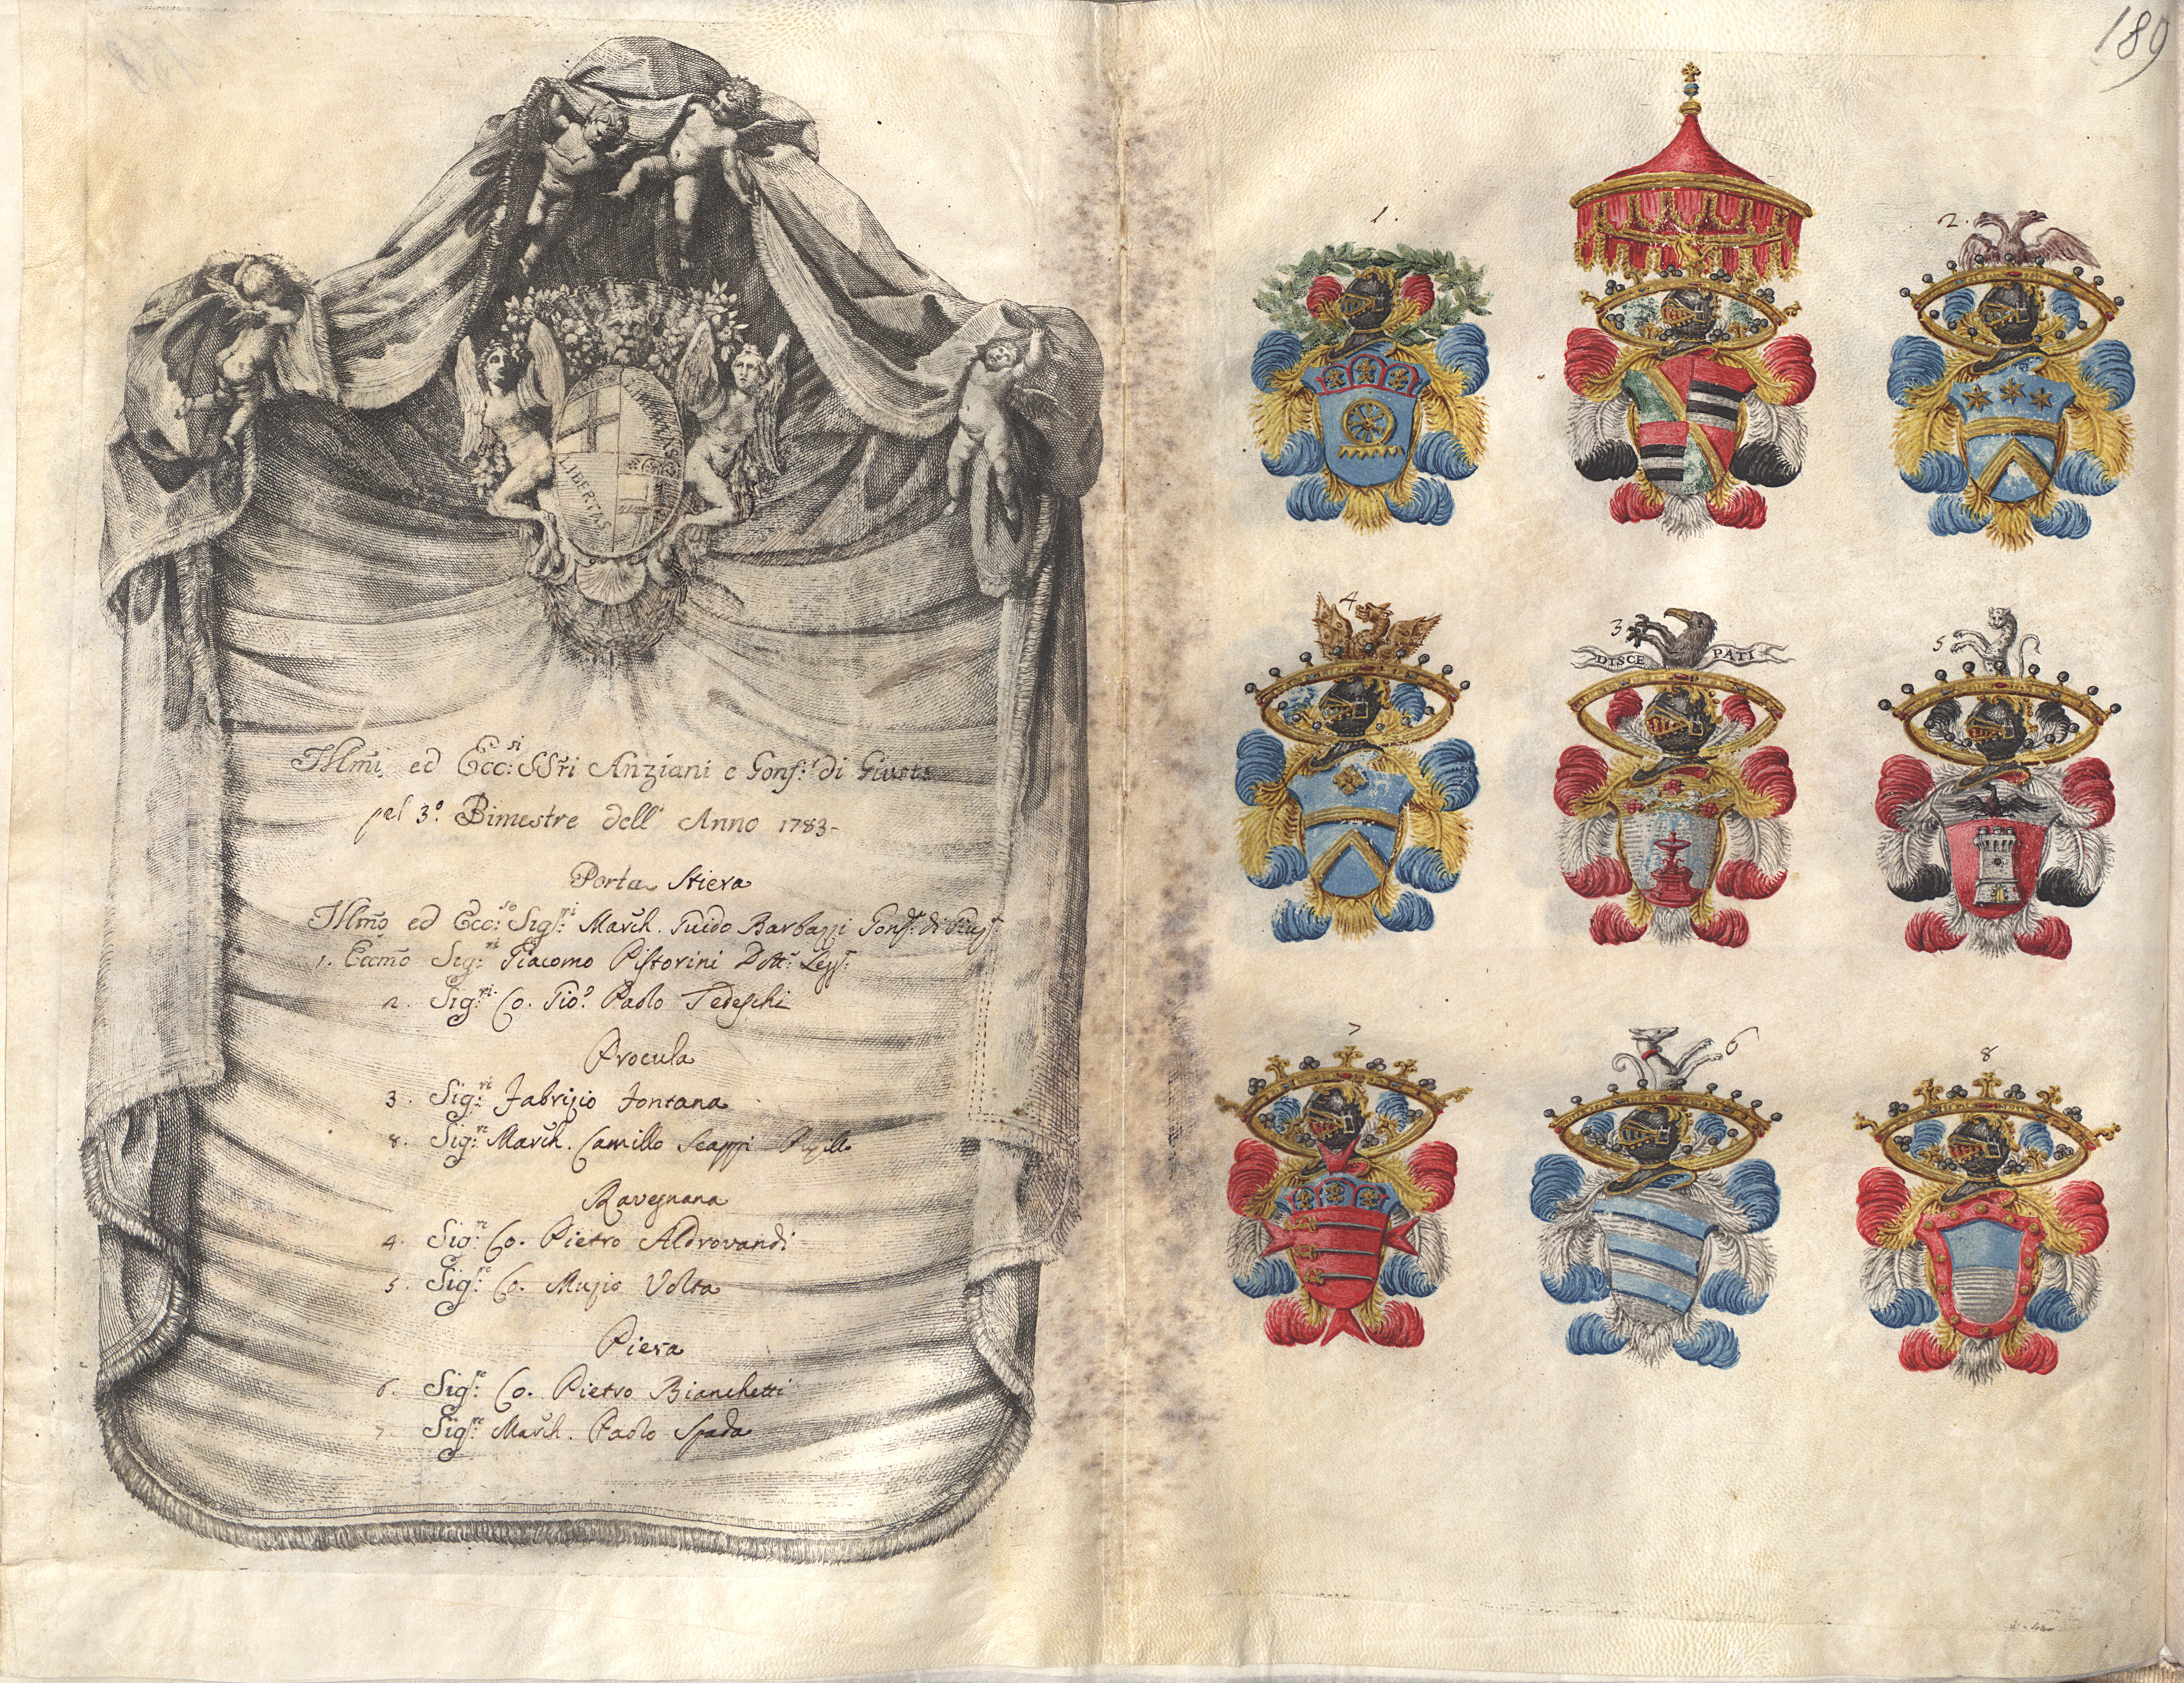 189
LIBERTAS
LIBERTAS
Illmi, ed Ecc:si SSri Anziani e Gonf:r di Giust:
pel 3.º Bimestre dell' Anno 1783-
Porta Stiera
Illmo ed Ecc:so Sig:ri March. Guido Barbazzi Gonf:r di Giust:
1. Eccmo Sig:ri Giacomo Pistorini Dott:r Legg:
2. Sig:ri Co. Gio: Paolo Tedeschi
Procula
3. Sig:ri Fabrizio Fontana
8. Sig:re March. Camillo Scappi
Ravegnana
4. Sig:re Co. Pietro Aldrovandi
5. Sig:re Co. Muzio Volta
Piera
6. Sig:re Co. Pietro Bianchetti
7. Sig:re March. Paolo Spada
1.
2.
4
3
DISCE PATI
5
7
6
8